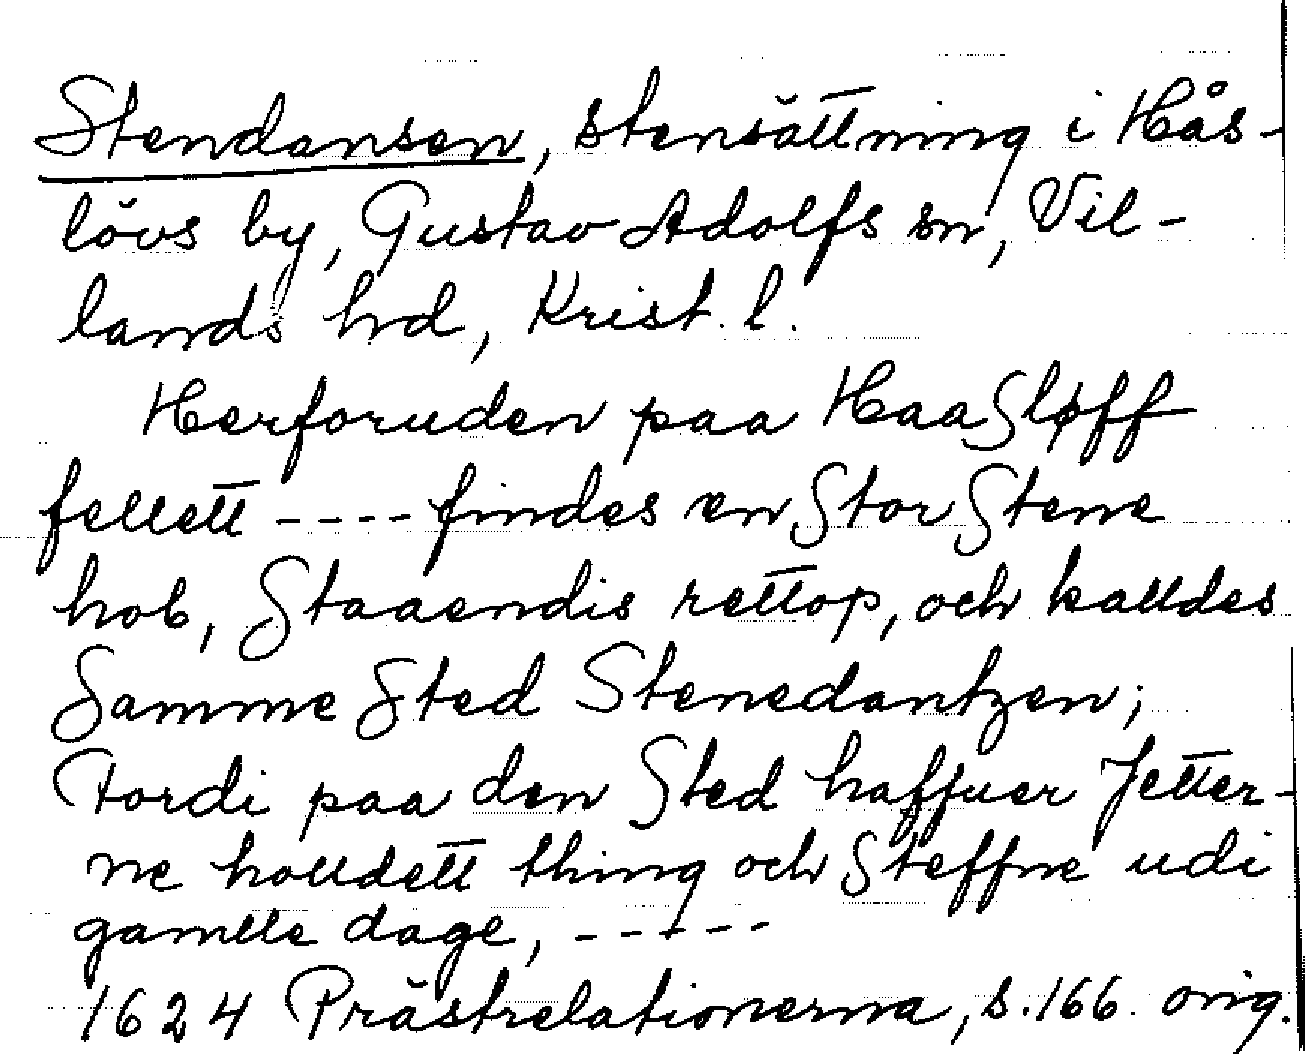 Stendansen, stensättning i Hås-
lövs by, Gustav Adolfs sn, Vil-
lands hd, Krist. l.
Herforuden paa Haasløff
fellett ---- findes en Stor Stene
hob, Staaendis rettop, och kalldes
Samme Sted Stenedantzen;
Fordi paa den Sted haffuer Jetter-
ne holldett thing och Steffne udi
gamlle dage, -----
1624 Prästrelationerna, s. 166. orig.